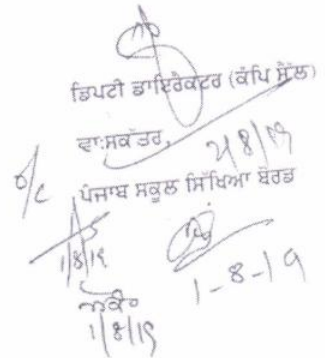 ਡਿਪਟੀ ਡਾਇਰੈਕਟਰ (ਕੰਪਿ ਸੈੱਲ)
ਵਾ:ਸਕੱਤਰ,
o/c ਪੰਜਾਬ ਸਕੂਲ ਸਿੱਖਿਆ ਬੋਰਡ
1/8/19
1-8-19
1/8/19